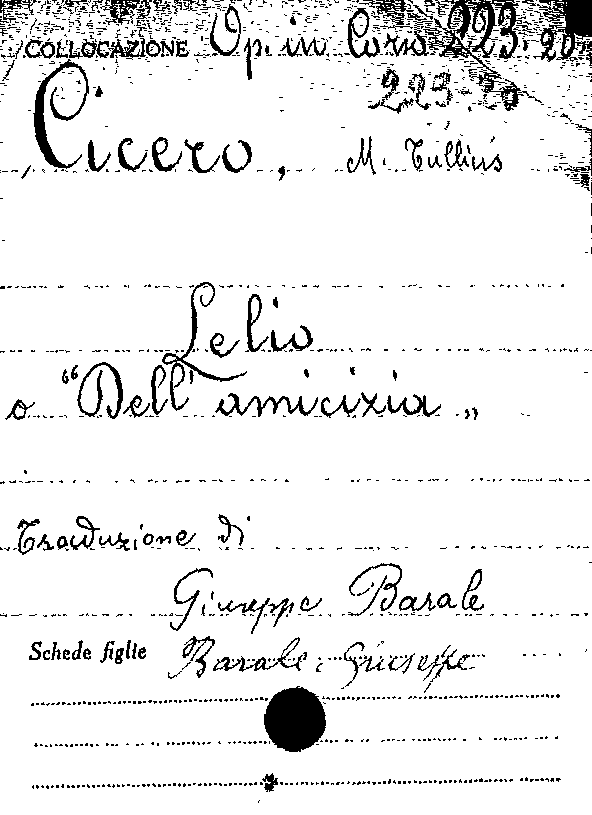 COLLOCAZIONE Op. in Corso 223. 20.
223-20
Cicero, M. Tullius
Lelio
o “Dell' amicizia „
Traduzione di
Giuseppe Barale
Schede figlie Barale, Giuseppe